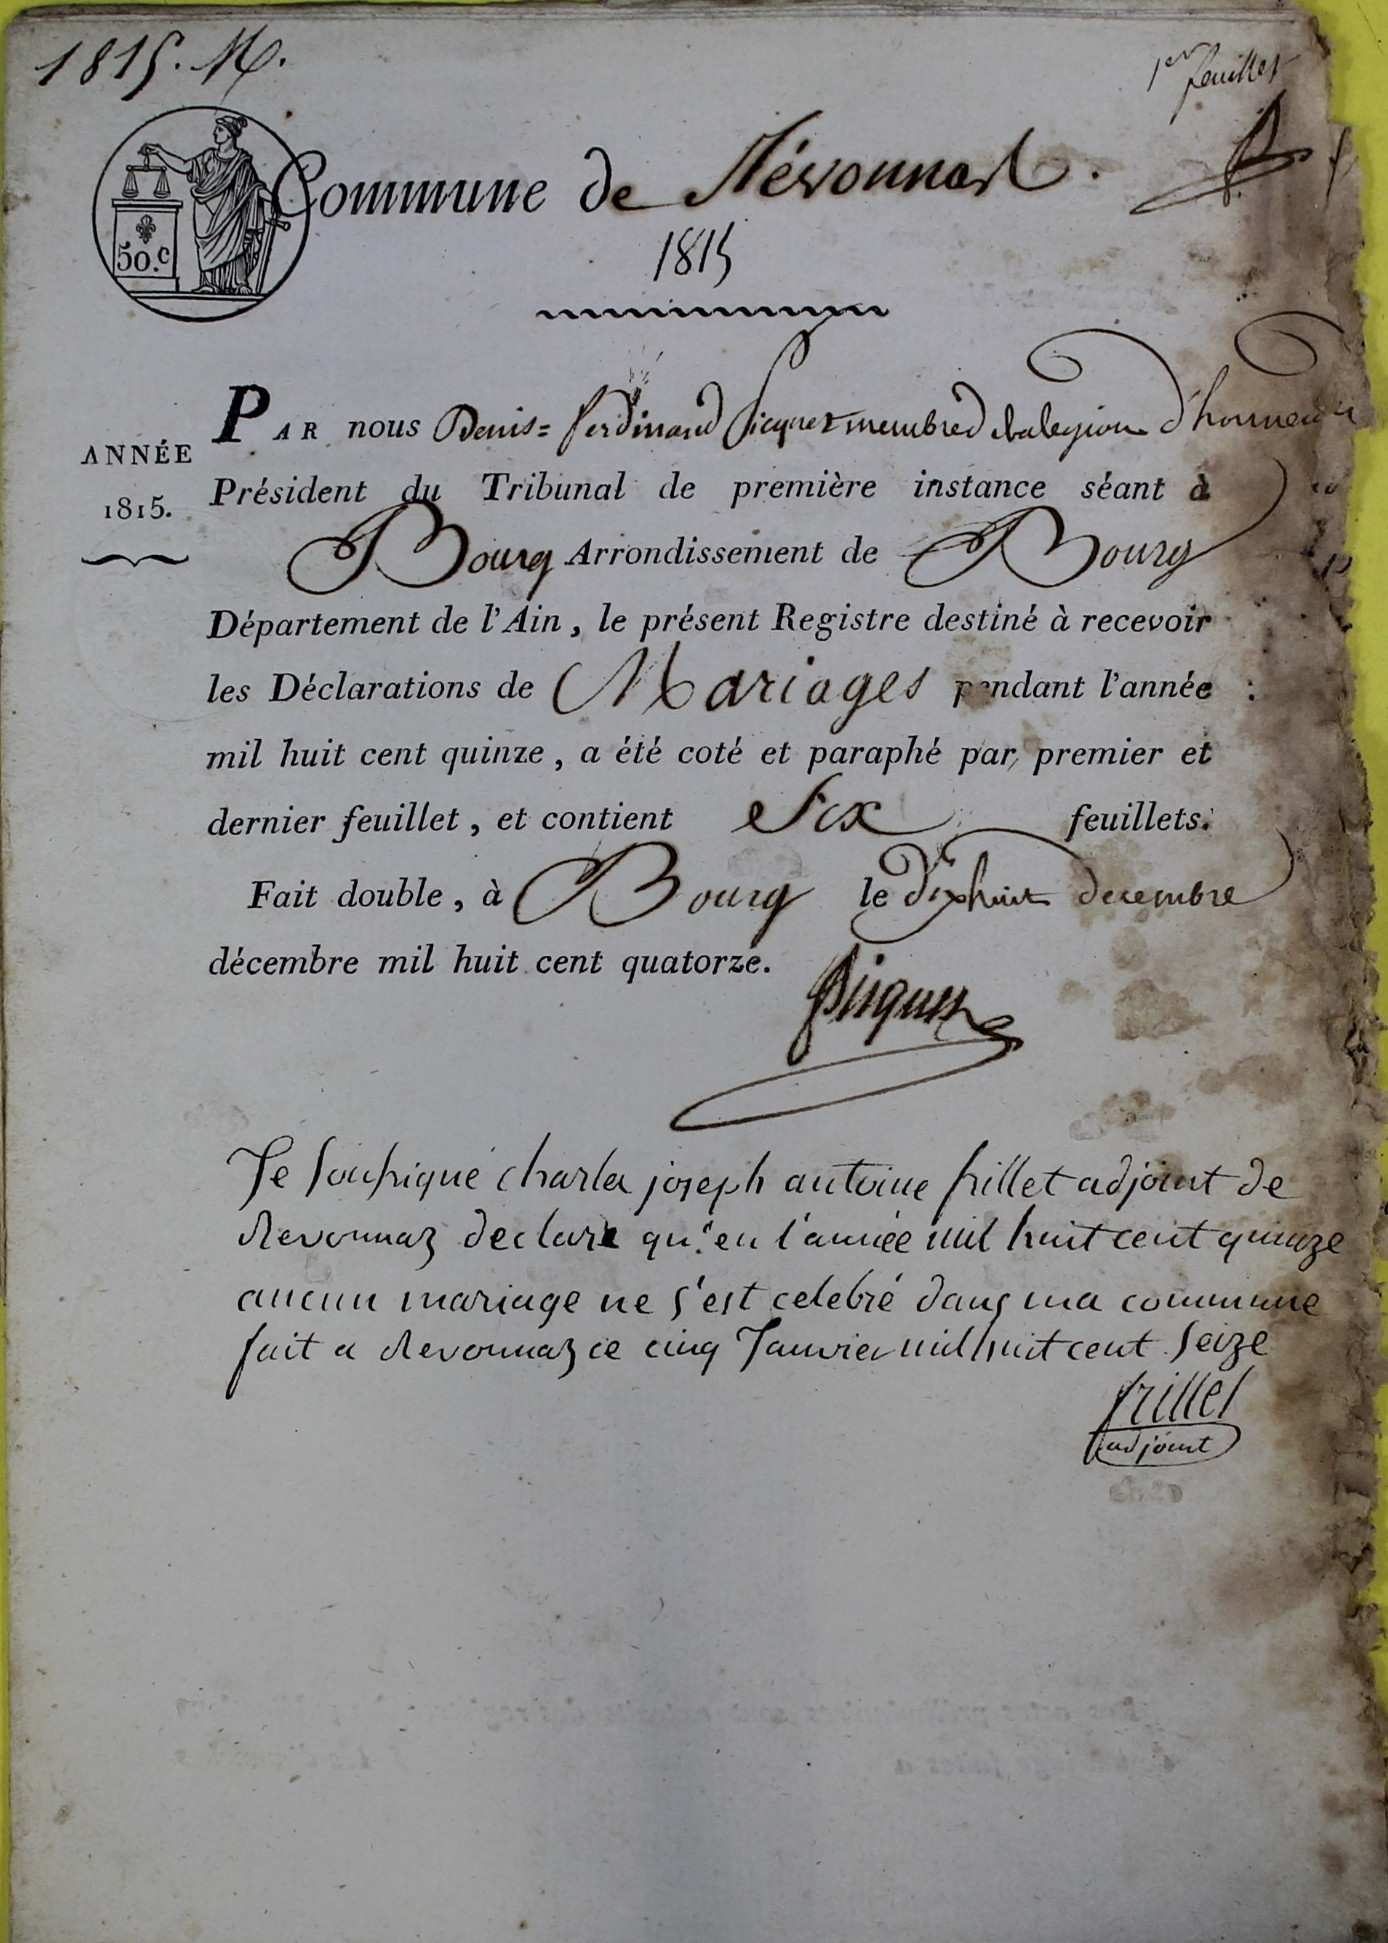 1815. M.
1er feuillet
50.c
Commune de Révonnas.
1815
ANNÉE
1815.
PAR nous Denis = ferdinand Picquet membre de la legion d'honneur
Président du Tribunal de première instance séant à
Bourg Arrondissement de Bourg
Département de l'Ain, le présent Registre destiné à recevoir
les Déclarations de Mariages pendant l'année
mil huit cent quinze, a été coté et paraphé par premier et
dernier feuillet, et contient Six feuillets.
Fait double, à Bourg le dixhuit decembre
décembre mil huit cent quatorze.
Picquet
Je soussigné charles joseph antoine frillet adjoint de
Revonnaz declare qu'en l'année mil huit cent quinze
aucun mariage ne s'est celebré dans ma commune
fait a Revonnaz ce cinq Janvier mil huit cent Seize
frillet
adjoint